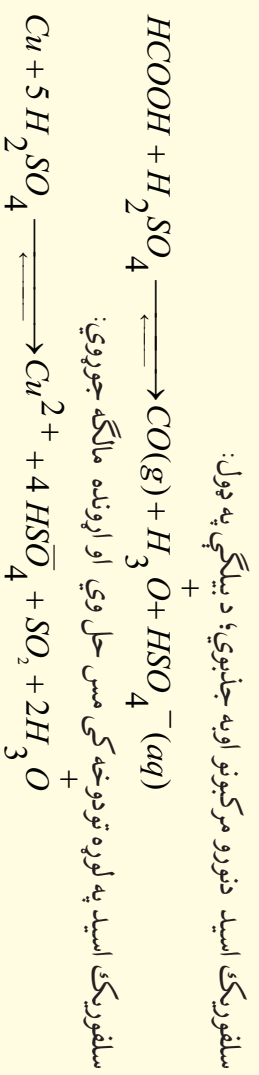 سلفوریک اسید دنورو مرکبونو اوبه جذبوي؛ د بیلگې په ډول:
HCOOH + H₂SO₄ ⇌ CO(g) + H₃O⁺ + HSO₄⁻(aq)
سلفوریک اسید په لوړه تودوخه کې مس حل وي او اړونده مالگه جوړوي:
Cu + 5 H₂SO₄ ⇌ Cu²⁺ + 4 HSO₄⁻ + SO₂ + 2H₃O⁺